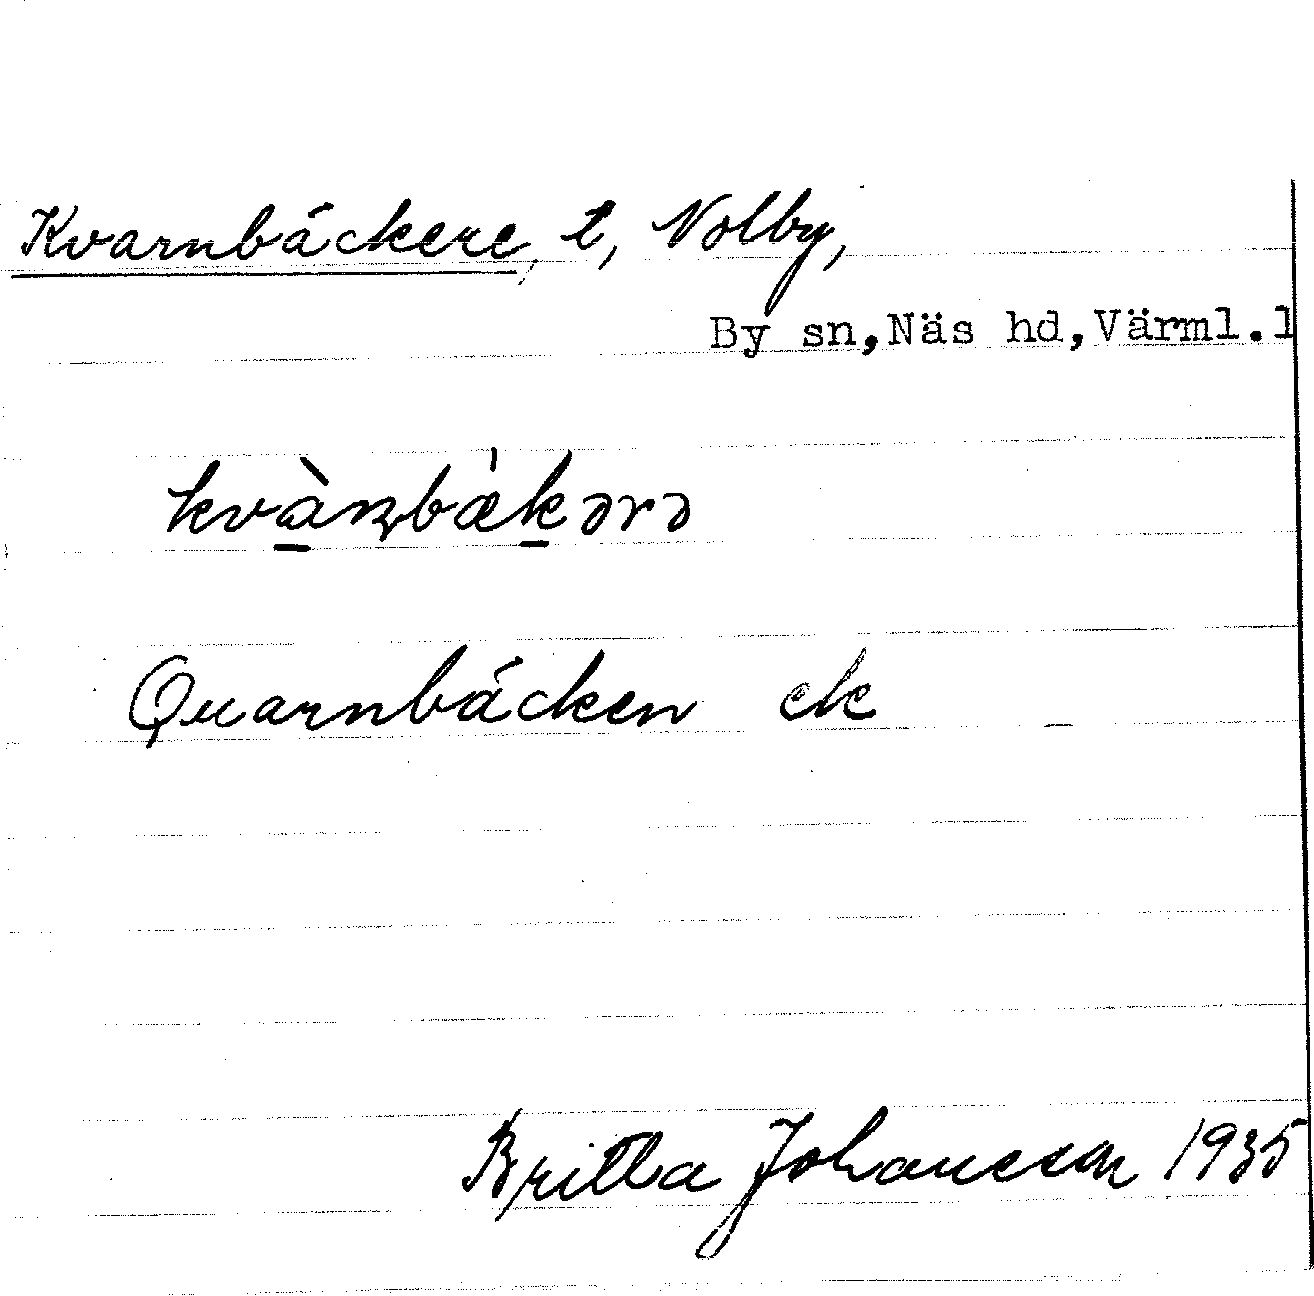 Kvarnbäckere, t, Nolby,
By sn,Näs hd,Värml.l
Quarnbäcken ek
Britta Johansson 1935